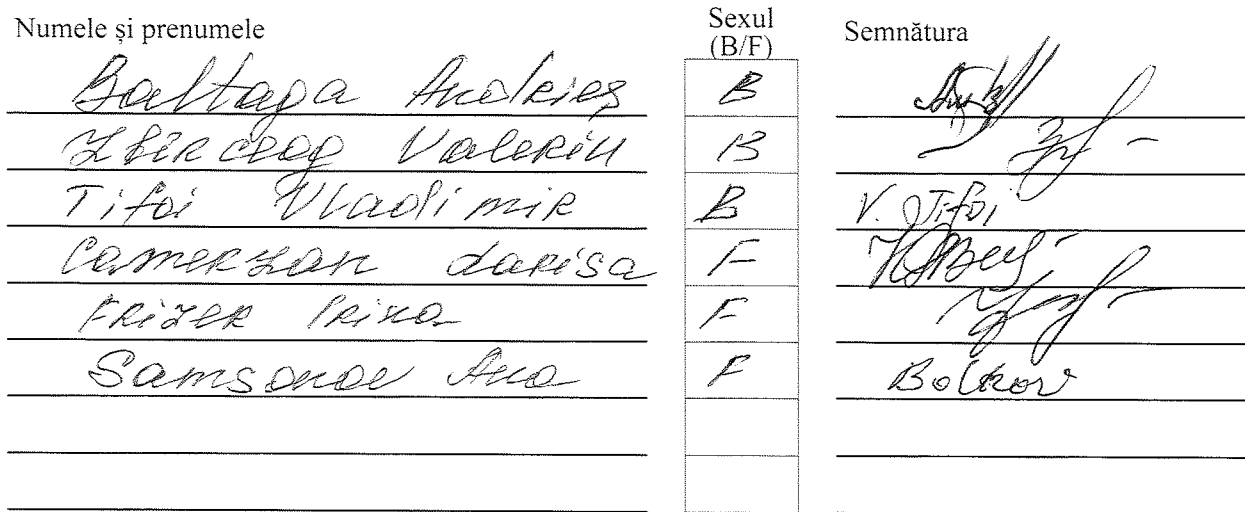 Numele și prenumele Sexul (B/F) Semnătura
Baltaga Andrieș B
Zbîrciog Valeriu B
Tifoi Vladimir B V. Tifoi
Camerzan Larisa F
Frizer Irina F
Samsonov Ana F Bolkov